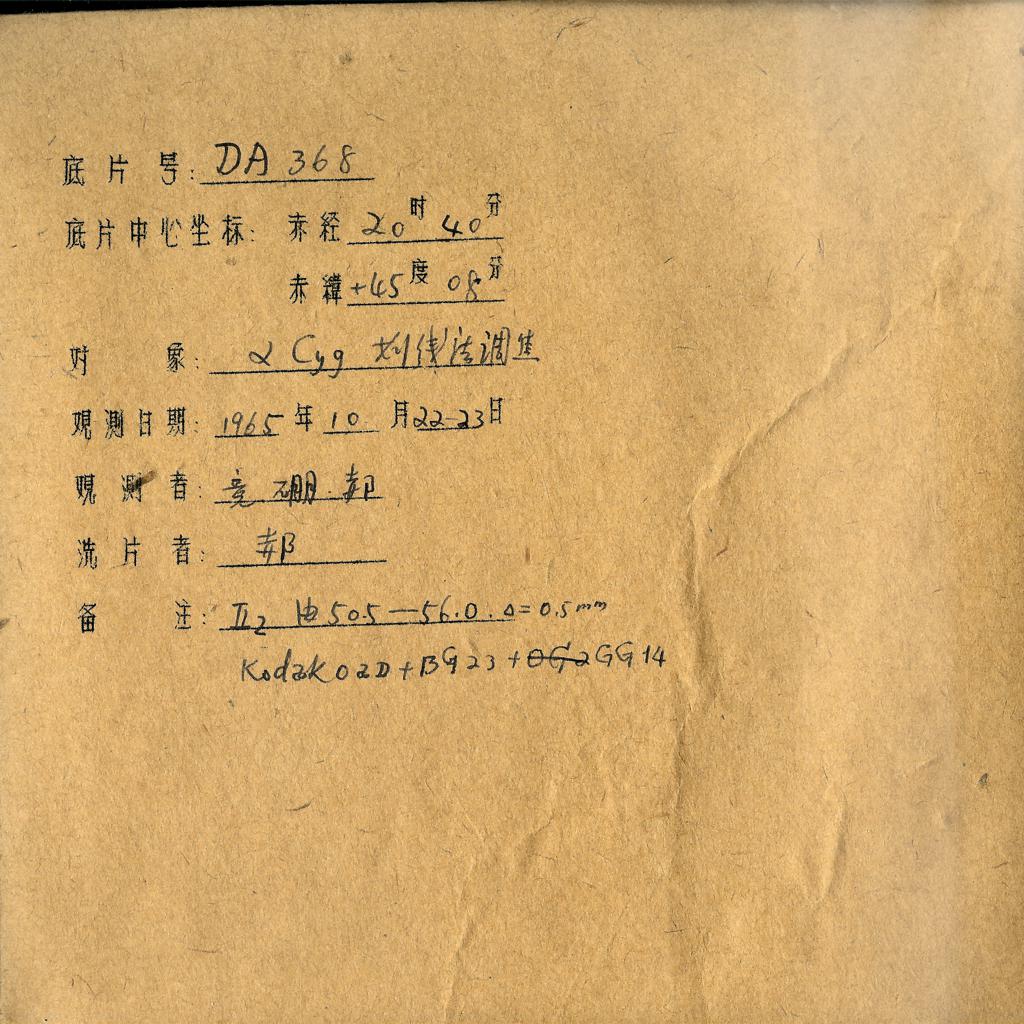 底片号: DA 368
底片中心坐标: 赤经 20时 40分
赤緯 +45度 08分
对象: α Cyg 刘线法调焦
观测日期: 1965年10月22-23日
观测者: 竞 硼
洗片者:
备注: II2 由 50.5—56.0. Δ=0.5mm
Kodak OaD + BG23 + OG2 GG14